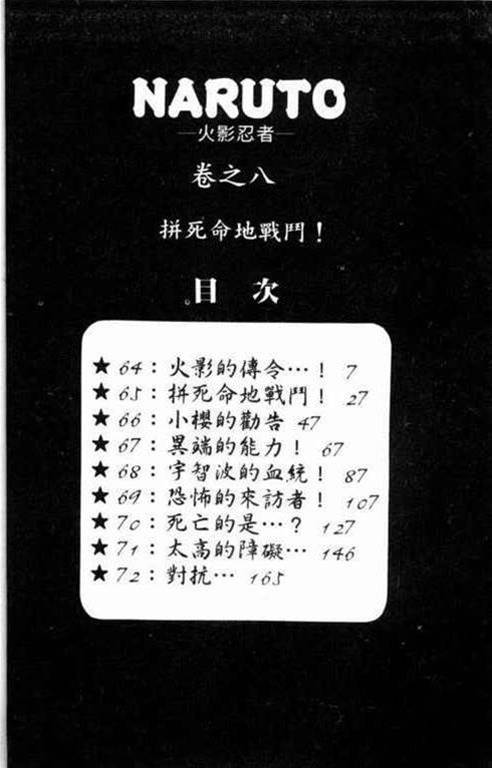 NARUTO
—火影忍者—
卷之八
拼死命地戰鬥！
目次
★64：火影的傳令…！ 7
★65：拼死命地戰鬥！ 27
★66：小櫻的勸告 47
★67：異端的能力！ 67
★68：宇智波的血統！ 87
★69：恐怖的來訪者！ 107
★70：死亡的是…？ 127
★71：太高的障礙… 146
★72：對抗… 165